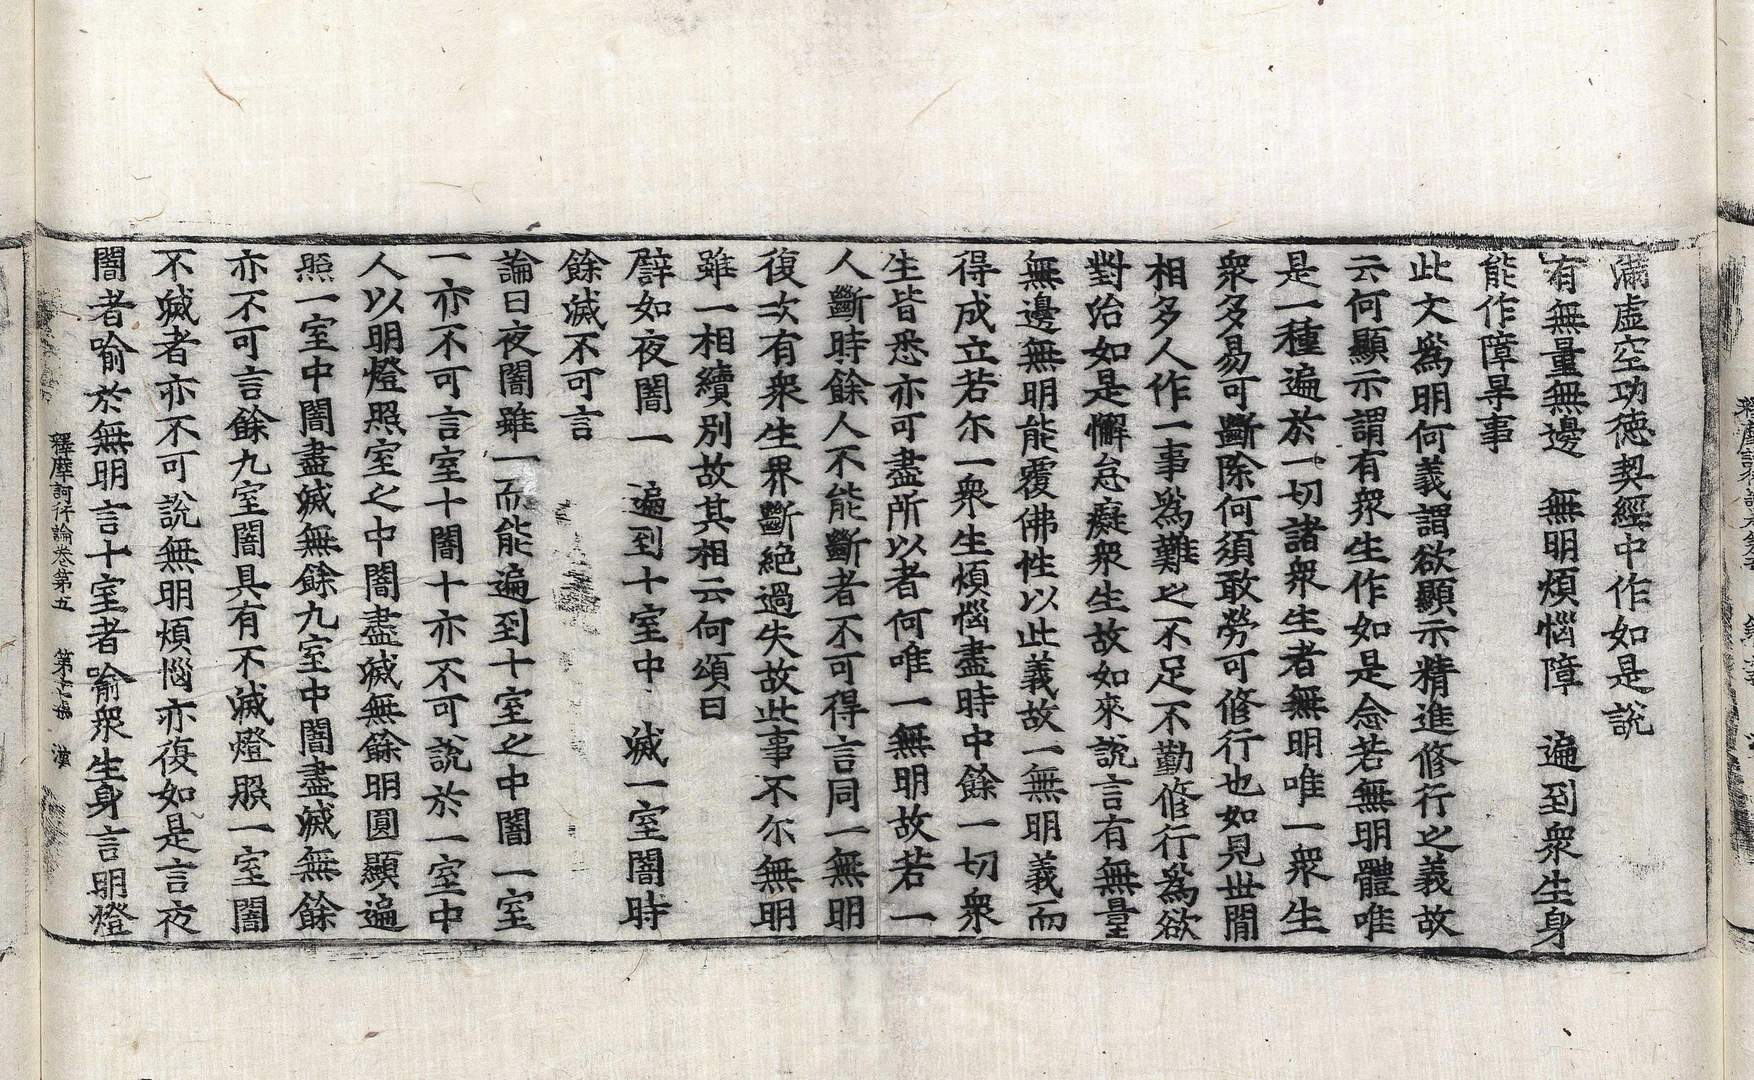 滿虛空功德契經中作如是說
有無量無邊　無明煩惱障　遍到衆生身
能作障㝵事
此文爲明何義謂欲顯示精進修行之義故
云何顯示謂有衆生作如是念若無明體唯
是一種遍於一切諸衆生者無明唯一衆生
衆多易可斷除何須敢勞可修行也如見世間
相多人作一事爲難之不足不勤修行爲欲
對治如是懈怠癡衆生故如來說言有無量
無邊無明能覆佛性以此義故一無明義而
得成立若尒一衆生煩惱盡時中餘一切衆
生皆悉亦可盡所以者何唯一無明故若一
人斷時餘人不能斷者不可得言同一無明
復次有衆生界斷絶過失故此事不尒無明
雖一相續別故其相云何頌曰
譬如夜闇一　遍到十室中　滅一室闇時
餘滅不可言
論曰夜闇雖一而能遍到十室之中闇一室
一亦不可言室十闇十亦不可說於一室中
人以明燈照室之中闇盡滅無餘明圓顯遍
照一室中闇盡滅無餘九室中闇盡滅無餘
亦不可言餘九室闇具有不滅燈照一室闇
不滅者亦不可說無明煩惱亦復如是言夜
闇者喻於無明言十室者喻衆生身言明燈
釋摩訶衍論卷第五　第　張　濱